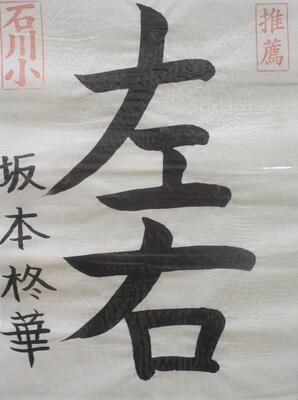 推薦
左右
坂本柊華
石川小